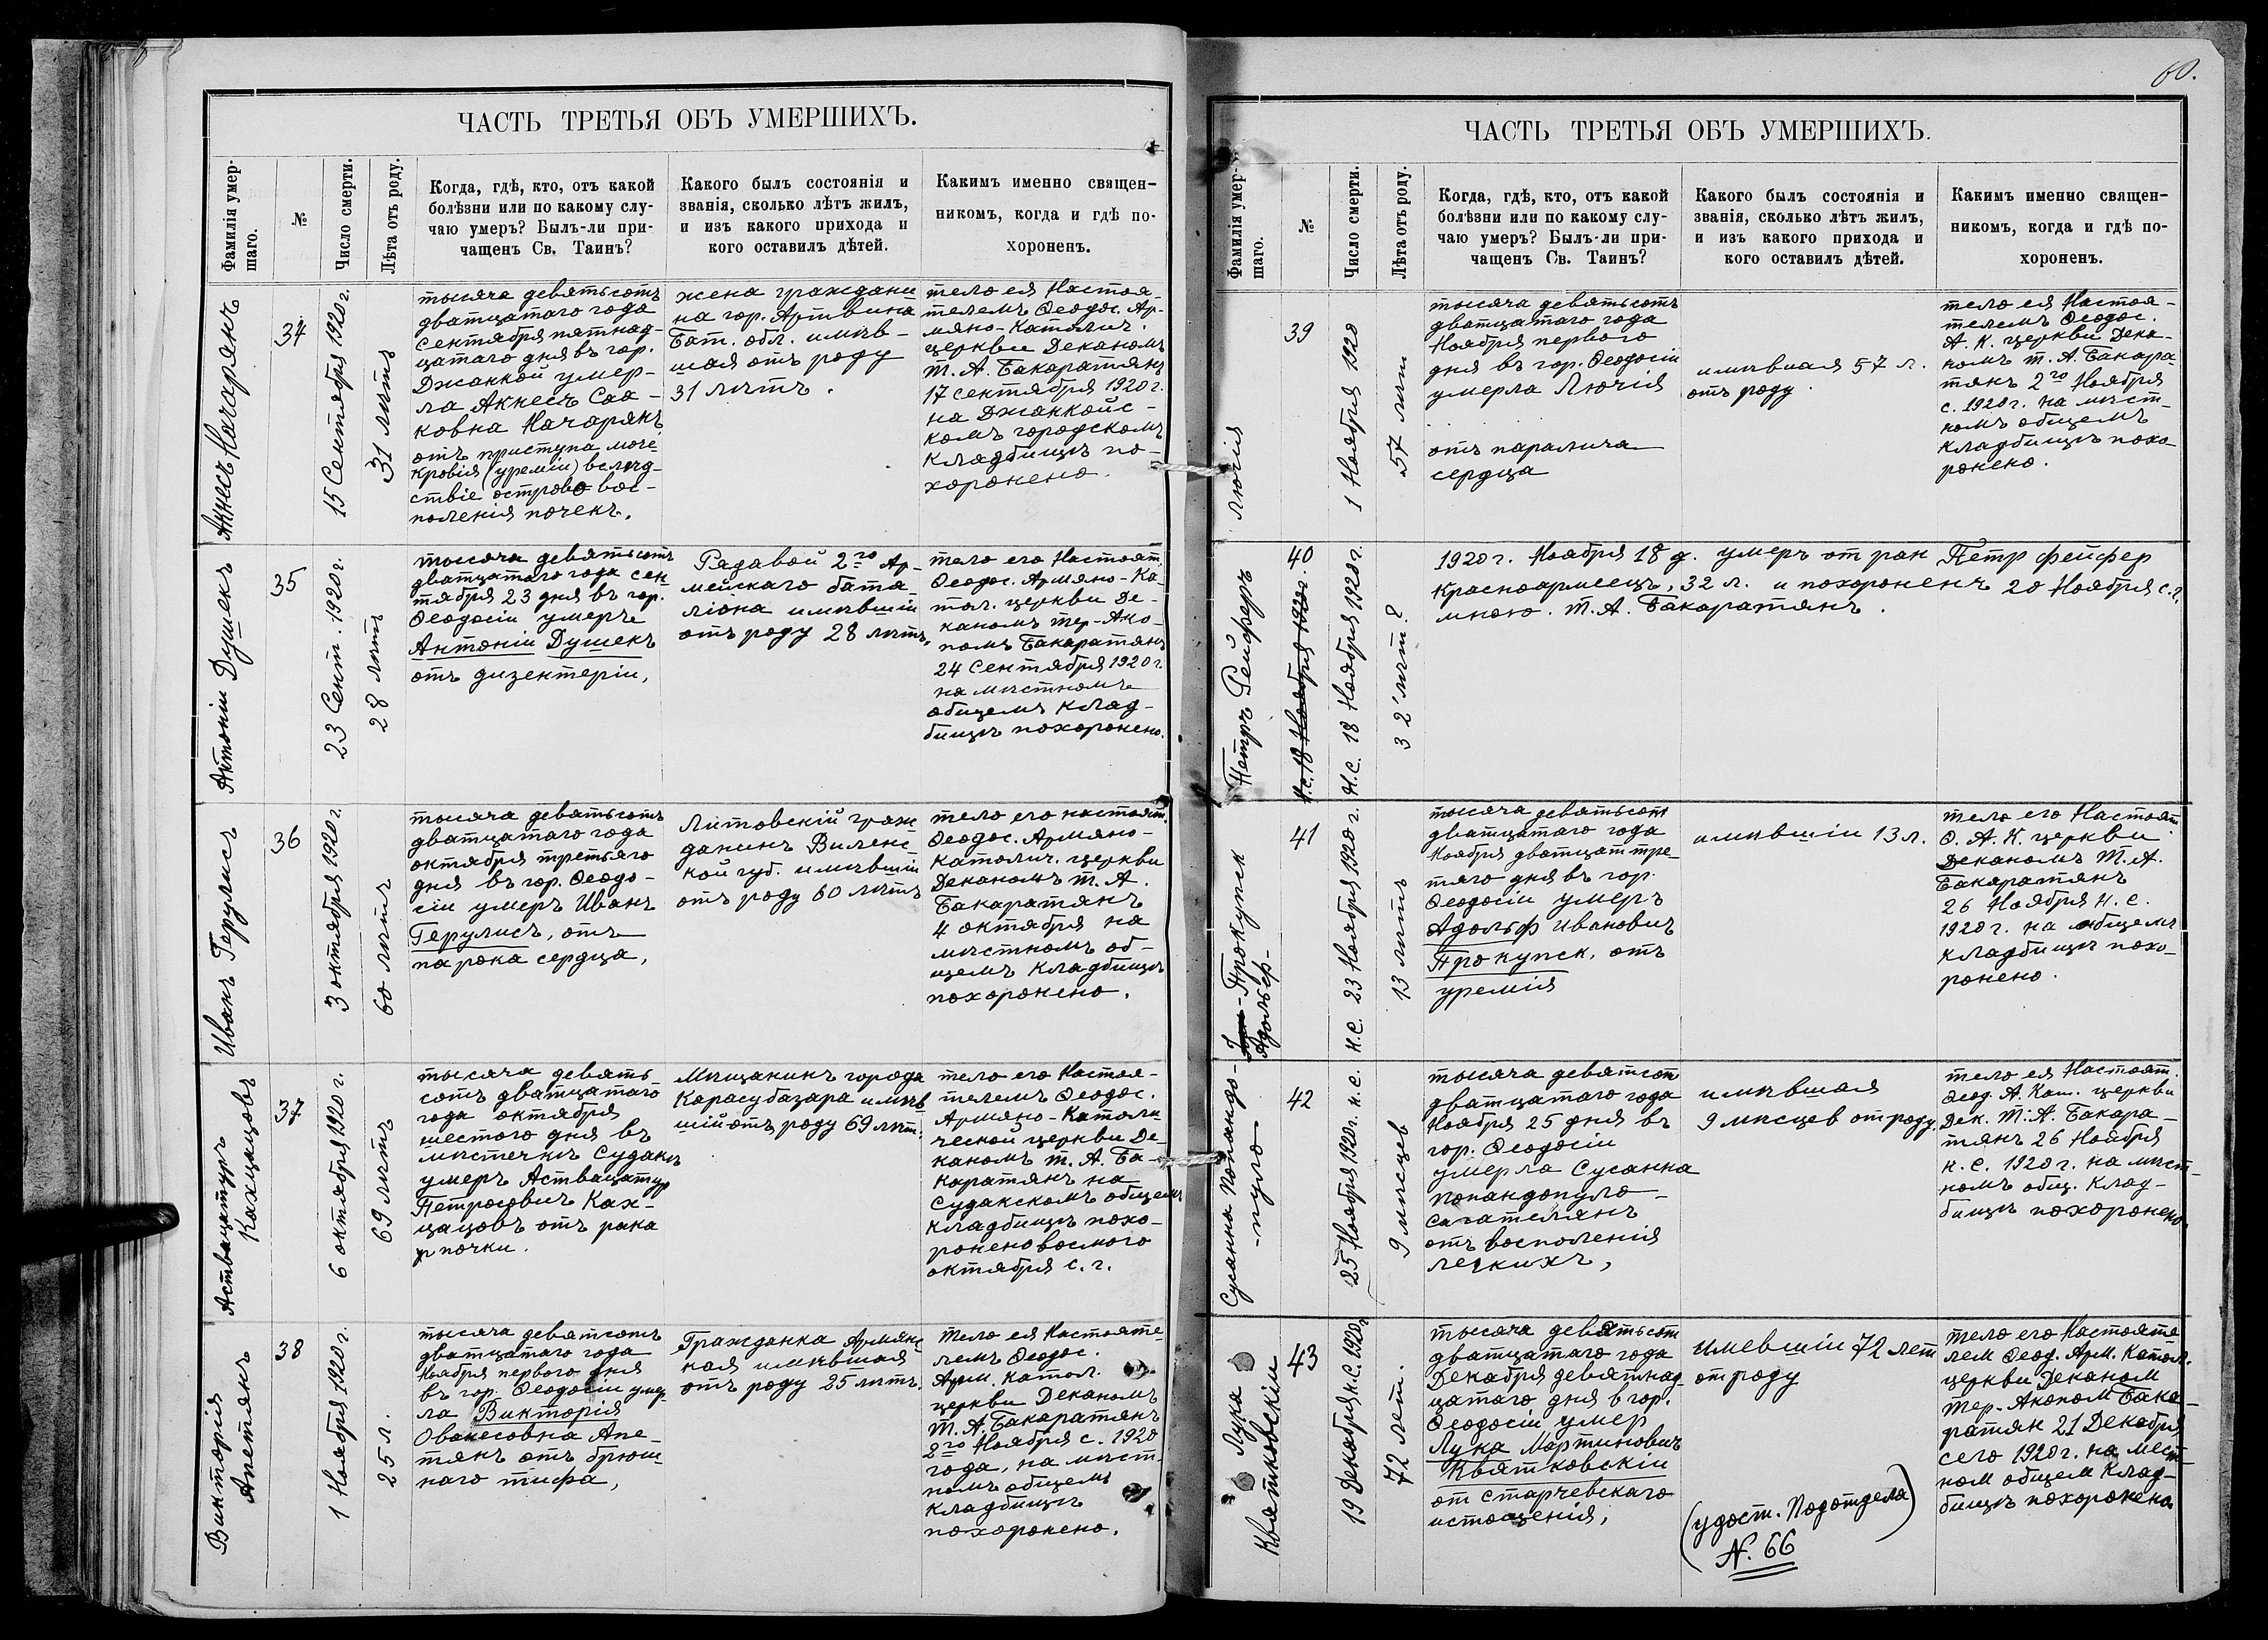 ЧАСТЬ ТРЕТЬЯ ОБЪ УМЕРШИХЪ.
Фамилія умер-
шаго.
№
Число смерти.
Лѣта отъ роду.
Когда, гдѣ, кто, отъ какой
болѣзни или по какому слу-
чаю умеръ? Былъ-ли при-
чащенъ Св. Таинъ?
Какого былъ состоянія и
званія, сколько лѣтъ жилъ,
и изъ какого прихода и
кого оставилъ дѣтей.
Какимъ именно священ-
никомъ, когда и гдѣ по-
хороненъ.
Акнесъ Начарянъ
34
15 Сентября 1920 г.
31 лѣтъ
тысяча девятьсотъ
дватцатаго года
сентября пятнад-
цатаго дня въ гор.
Джанкой умер-
ла Акнесъ Саа-
ковна Начарянъ
отъ приступа моче-
кровія (уреміи) вслѣд-
ствіе острово вос-
поленія почекъ.
жена граждани
на гор. Артвина
Бат. обл. имѣв-
шая отъ роду
31 лѣтъ.
тело ея Настоя-
телемъ Ѳеодос. Ар-
мяно-Католич.
церкви Деканомъ
Т. А. Бакаратянъ
17 сентября 1920 г.
на Джанкойс-
комъ городскомъ
кладбищѣ по-
хоронено.
Антоніи Душекъ
35
23 Сент. 1920 г.
28 лѣтъ
тысяча девятьсотъ
дватцатаго года сен
тября 23 дня въ гор.
Ѳеодосіи умеръ
Антоніи Душекъ
отъ дизентеріи,
Рядавой 2го Ар-
мейскаго бата-
ліона имѣвшіи
отъ роду 28 лѣтъ.
тело его Настоят.
Ѳеодос. Армяно-Ка-
тол. церкви Де-
каномъ Тер-Ако-
помъ Бакаратянъ
24 Сентября 1920 г.
на мѣстномъ
общемъ клад-
бищѣ похоронено.
Иванъ Герулисъ
36
3 октября 1920 г.
60 лѣтъ
тысяча девятьсотъ
дватцатаго года
октября третьяго
дня въ гор. Ѳеодо-
сіи умеръ Иванъ
Герулисъ, отъ
парока сердца,
Литовскій граж
данинъ Виленс
кой губ. имѣвшіи
отъ роду 60 лѣтъ
тело его настоят.
Ѳеодос. Армяно-
католич. церкви
Деканомъ Т. А.
Бакаратянъ
4 октября на
мѣстномъ об-
щемъ кладбищѣ
похоронено.
Аствацатуръ
Кахцацовъ
37
6 октября 1920 г.
69 лѣтъ
тысяча девять
сотъ дватцатаго
года октября
шестого дня въ
мѣстечкѣ Судакъ
умеръ Аствацатур
Петросовичъ Ках-
цацовъ отъ рака
почки.
Мѣщанинъ города
Карасубазара имѣв
шій отъ роду 69 лѣт.
тело его Настоя-
телемъ Ѳеодос.
Армяно-Католи
ческой церкви Де-
каномъ Т. А. Ба-
каратянъ на
Судакскомъ общемъ
кладбищѣ похо-
ронено восмого
октября с. г.
Викторія
Апетянъ
38
1 Ноября 1920 г.
25 л.
тысяча девятсотъ
дватцатаго года
Ноября первого дня
въ гор. Ѳеодосіи умер
ла Викторія
Ованесовна Апе-
тянъ отъ брюш
наго тифа,
Гражданка Армянс
кая имѣвшая
отъ роду 25 лѣтъ.
тело ея Настояте
лемъ Ѳеодос.
Арм. Катол.
церкви Деканомъ
Т. А. Бакаратянъ
2го Ноября с. 1920
года, на мѣст
номъ общемъ
кладбищѣ
похоронено.
60.
ЧАСТЬ ТРЕТЬЯ ОБЪ УМЕРШИХЪ.
Фамилія умер-
шаго.
№
Число смерти.
Лѣта отъ роду.
Когда, гдѣ, кто, отъ какой
болѣзни или по какому слу-
чаю умеръ? Былъ-ли при-
чащенъ Св. Таинъ?
Какого былъ состоянія и
званія, сколько лѣтъ жилъ,
и изъ какого прихода и
кого оставилъ дѣтей.
Какимъ именно священ-
никомъ, когда и гдѣ по-
хороненъ.
Лючія
39
1 Ноября 1920
57 лѣт
тысяча девятьсотъ
дватцатаго года
Ноября первого
дня въ гор. Ѳеодосіи
умерла Лючія
отъ паралича
сердца
имѣвшая 57 л.
отъ роду.
тело ея Настоя-
телемъ Ѳеодос.
А. К. церкви Дека-
номъ Т. А. Бакара
тянъ 2го Ноября
с. 1920 г. на мѣст-
номъ общемъ
кладбищѣ похо
ронено.
Петръ Фейферъ
40
Н.с. 18 Ноября 1920 г.
Н.С. 18 Ноября 1920 г.
32 лѣт.?
1920 г. Ноября 18 д. умеръ от ран Петр Фейфер
Красноармеецъ, 32 л. и похороненъ 20 Ноября с. г.
мною. Т. А. Бакаратянъ.
Прокупск
Адольф-
41
Н.С. 23 Ноября 1920 г.
13 лѣтъ
тысяча девятьсот
дватцатаго года
Ноября дватцат тре-
тяго дня въ гор.
Ѳеодосіи умеръ
Адольф Ивановичъ
Прокупск, отъ
уремія
имѣвшіи 13 л.
тело его Настоят.
Ѳ. А. К. церкви
Деканомъ Т. А.
Бакаратянъ
26 Ноября Н. с.
1920 г. на общемъ
кладбищѣ похо-
ронено.
Сусанна Попандо-
-пуло-
42
25 Ноября 1920 г. н. с.
9 мѣсяцев
тысяча девятсот
дватцатаго года
Ноября 25 дня въ
гор. Ѳеодосіи
умерла Сусанна
Попандопуло-
Сагателянъ
отъ восполенія
легкихъ,
имѣвшая
9 мѣсцев от роду.
тело ея Настоят.
Ѳеод. А. Кат. церкви
Дек. Т. А. Бакара-
тянъ 26 Ноября
н. с. 1920 г. на мѣст-
номъ общ. клад-
бищѣ похоронено.
Лука
Квятковскіи
43
19 Декабря н.с. 1920 г.
72 лет.
тысяча девятьсот
дватцатаго года
Декабря девятнад-
цатаго дня в гор.
Ѳеодосіи умер
Лука Мартинович
Квятковскіи
от старчевскаго
истощенія,
имевшіи 72 лет
от роду
(удост. Подотдела)
N. 66
тело его Настояте
лем Ѳеод. Арм. Катол.
церкви Деканом
Тер-Акопом Бака-
ратян 21 Декабря
сего 1920 г. на мест-
ном общем клад-
бищѣ похоронено